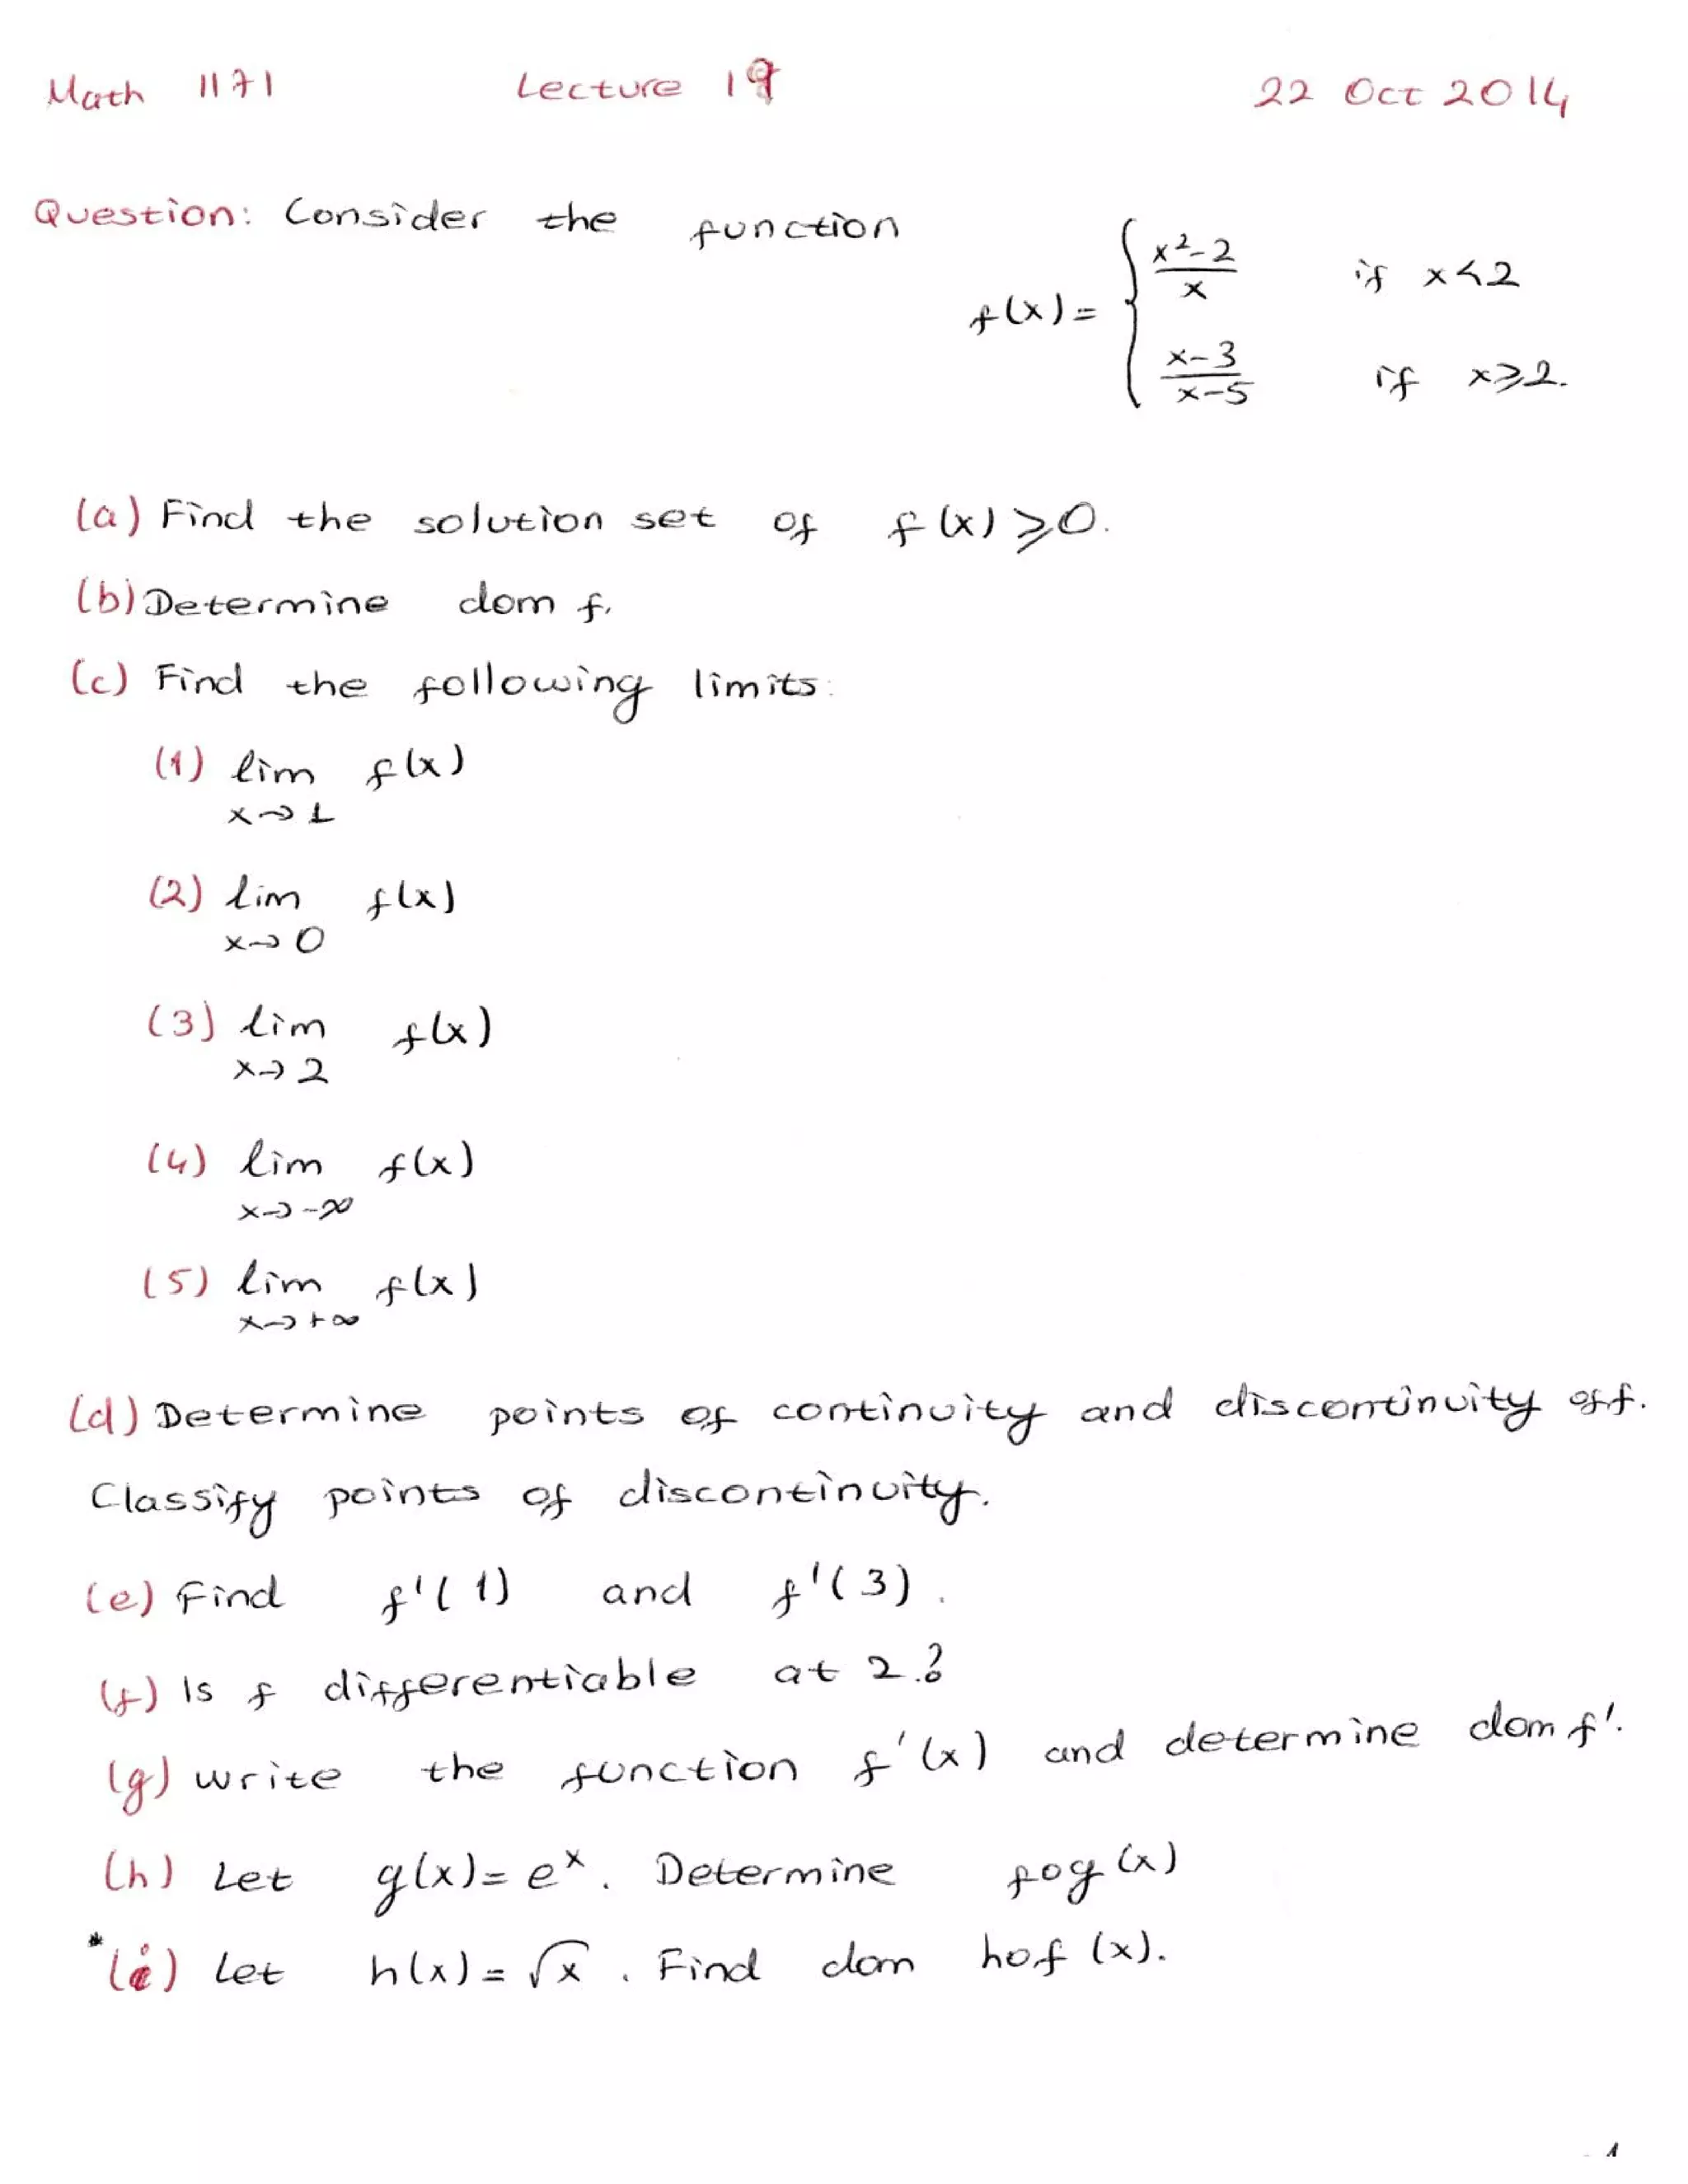 Math 1171 Lecture 19 22 Oct 2014
Question: Consider the function
f(x) = { (x²-2)/x if x<2
(x-3)/(x-5) if x⩾2.
(a) Find the solution set of f(x) ⩾0.
(b) Determine dom f.
(c) Find the following limits:
(1) lim f(x)
x→1
(2) lim f(x)
x→0
(3) lim f(x)
x→2
(4) lim f(x)
x→-∞
(5) lim f(x)
x→+∞
(d) Determine points of continuity and discontinuity of f.
Classify points of discontinuity.
(e) Find f'(1) and f'(3).
(f) Is f differentiable at 2?
(g) write the function f'(x) and determine dom f'.
(h) Let g(x)= eˣ. Determine fog(x)
*(i) Let h(x)=√x. Find dom hof (x).
1